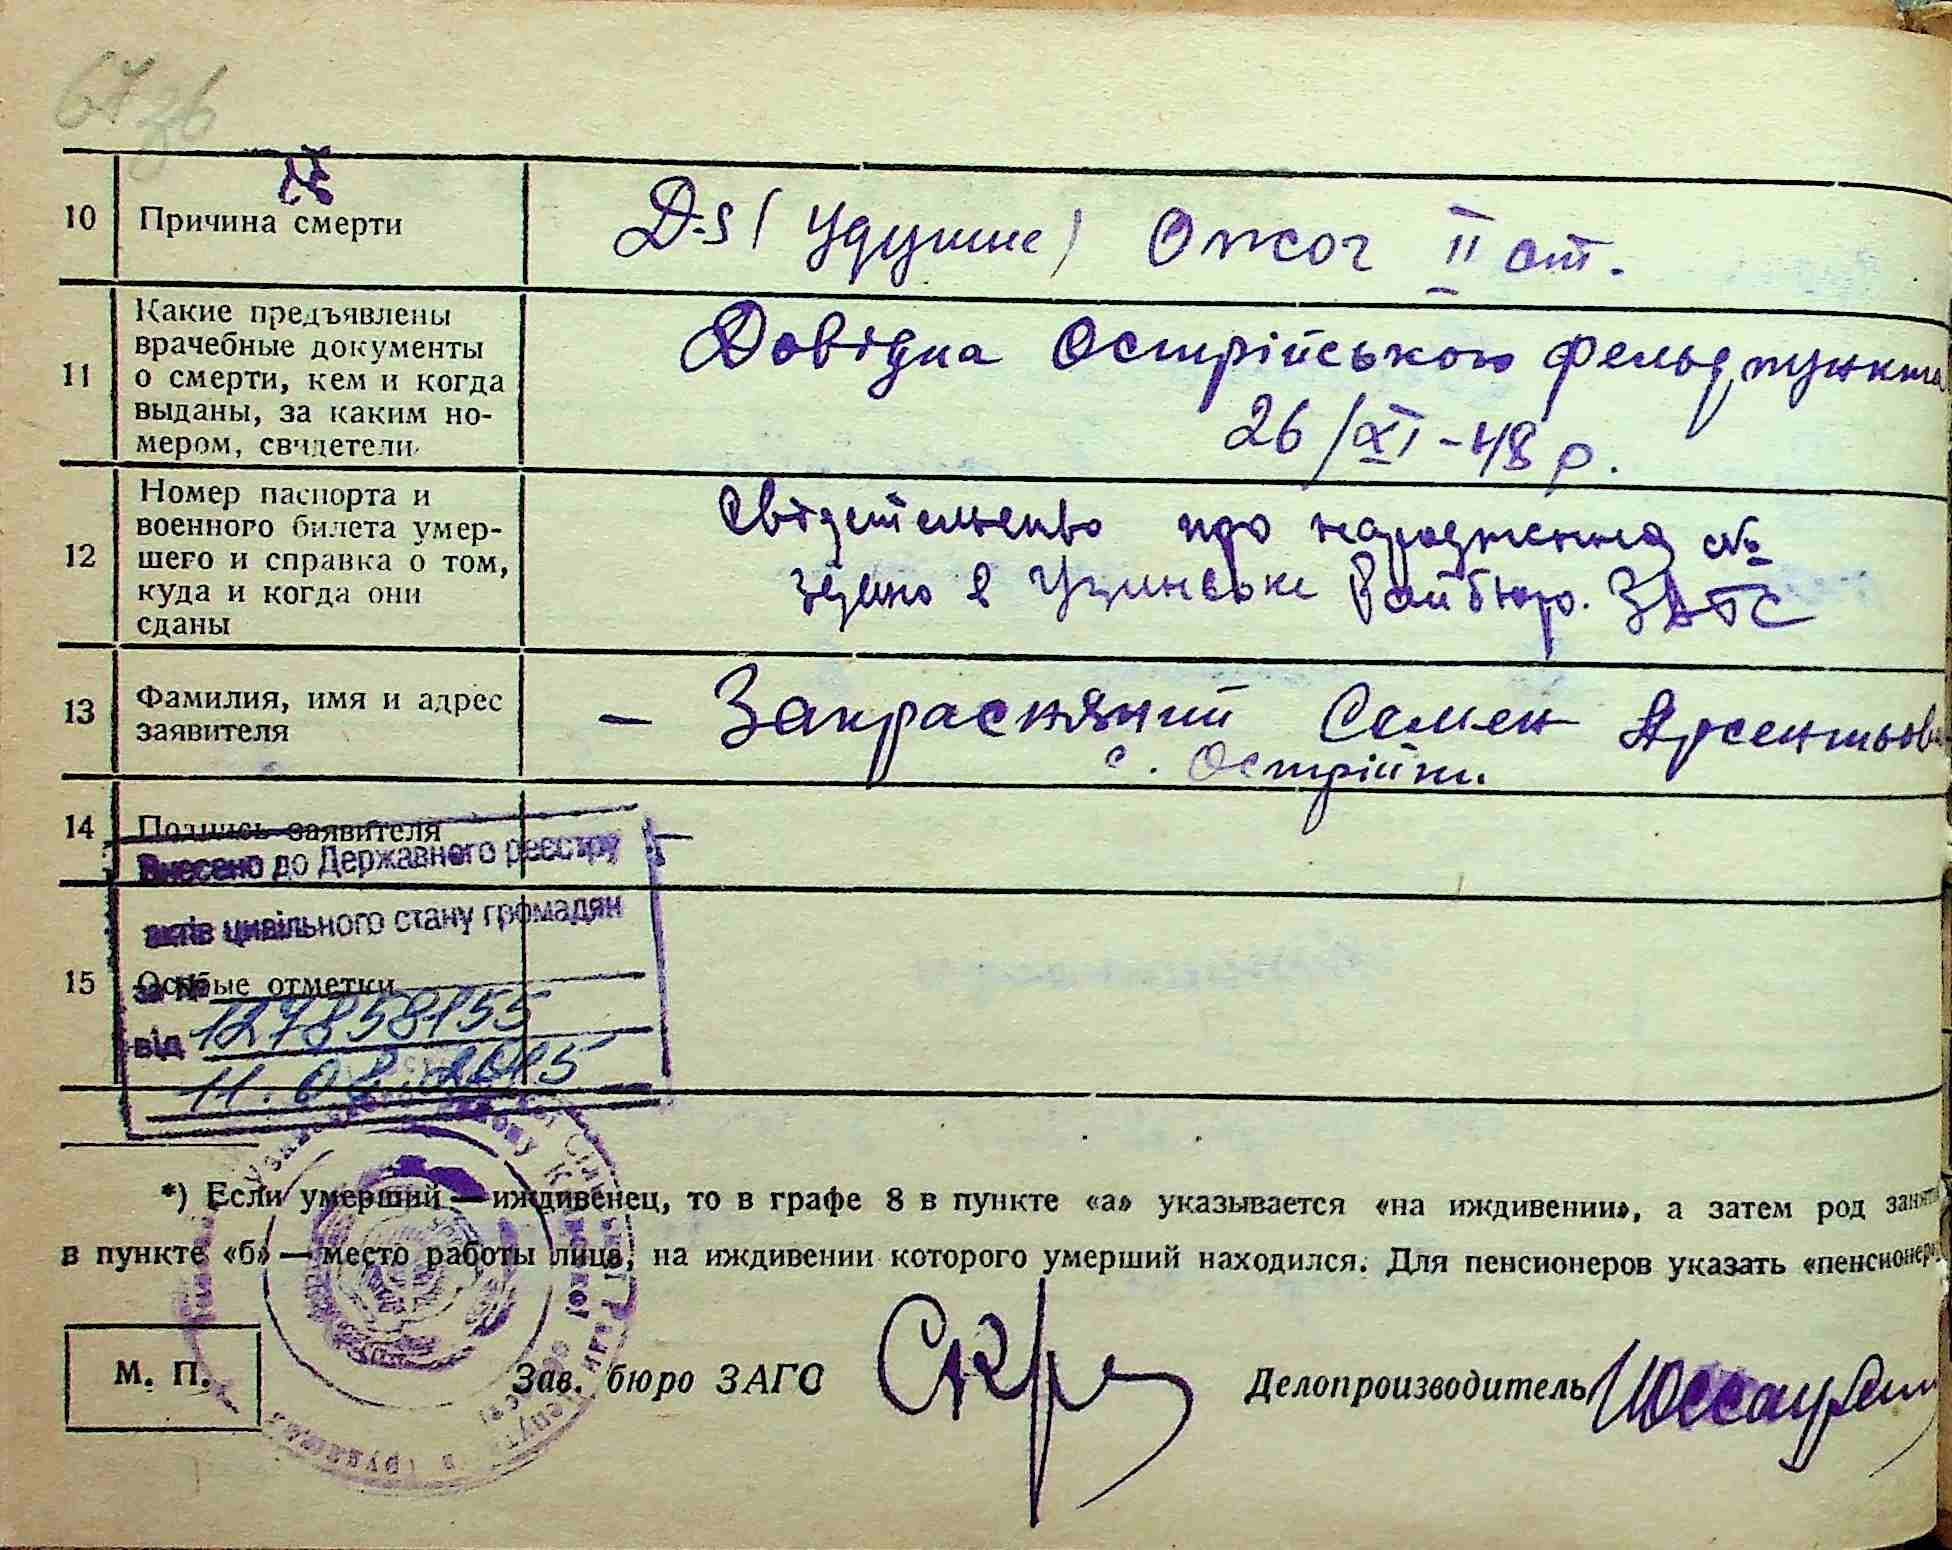 67зв
10 Причина смерти
D-s (Удушие) Ожог II ст.
11 Какие предъявлены
врачебные документы
о смерти, кем и когда
выданы, за каким но-
мером, свидетели
Довідка Острійського фельдпункта
26/XI-48 р.
12 Номер паспорта и
военного билета умер-
шего и справка о том,
куда и когда они
сданы
Свідетельство про народження №
здано в Узинське Райбюро. ЗАГС
13 Фамилия, имя и адрес
заявителя
— Закрасняний Семен Арсентьов
с. Острійки.
14 Подпись заявителя
Внесено до Державного реєстру
актів цивільного стану громадян
15 Особые отметки
за №
127858155
від
11.02.2015
*) Если умерший — иждивенец, то в графе 8 в пункте «а» указывается «на иждивении», а затем род заняти
в пункте «б» — место работы лица, на иждивении которого умерший находился. Для пенсионеров указать «пенсионер»
М. П.
Зав. бюро ЗАГС
Делопроизводитель